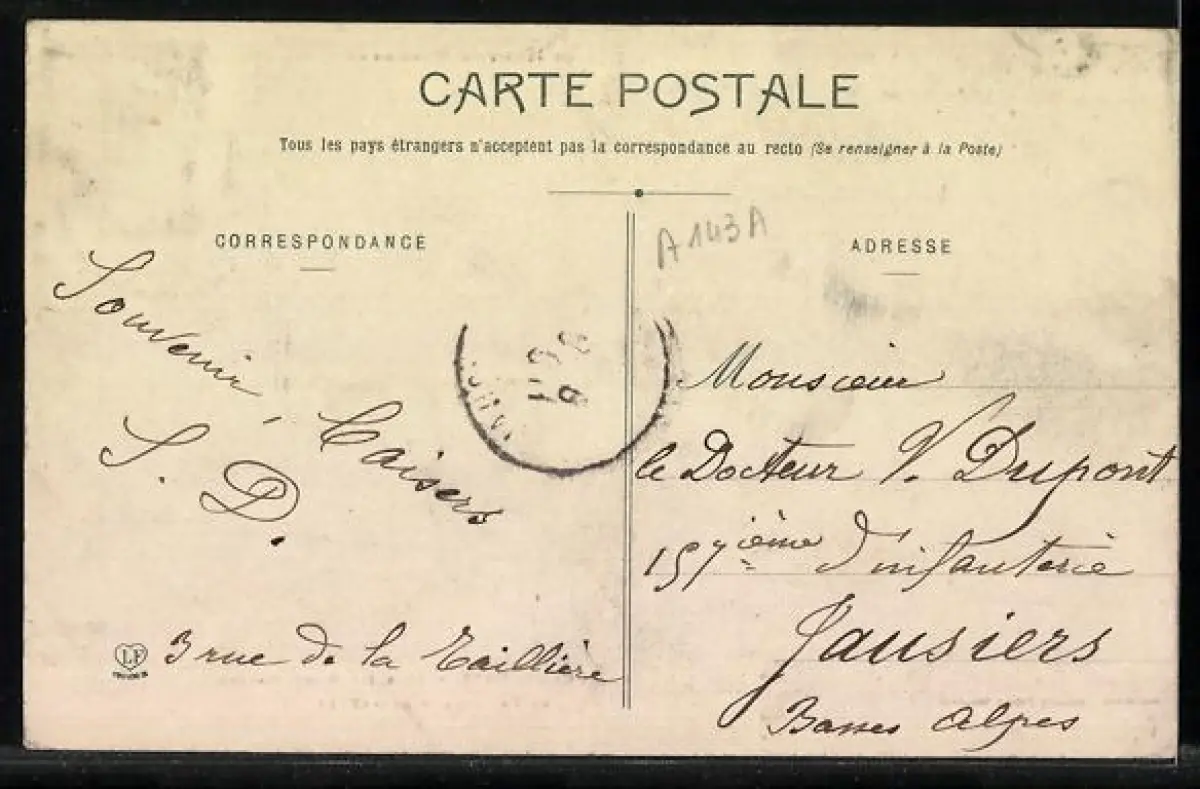 CARTE POSTALE
Tous les pays étrangers n'acceptent pas la correspondance au recto (Se renseigner à la Poste)
CORRESPONDANCE
ADRESSE
A143A
Souvenir,
S. D.
3 rue de la Taillière
LF
Monsieur
le Docteur V. Dupont
157ième d'infanterie
Jausiers
Basses Alpes